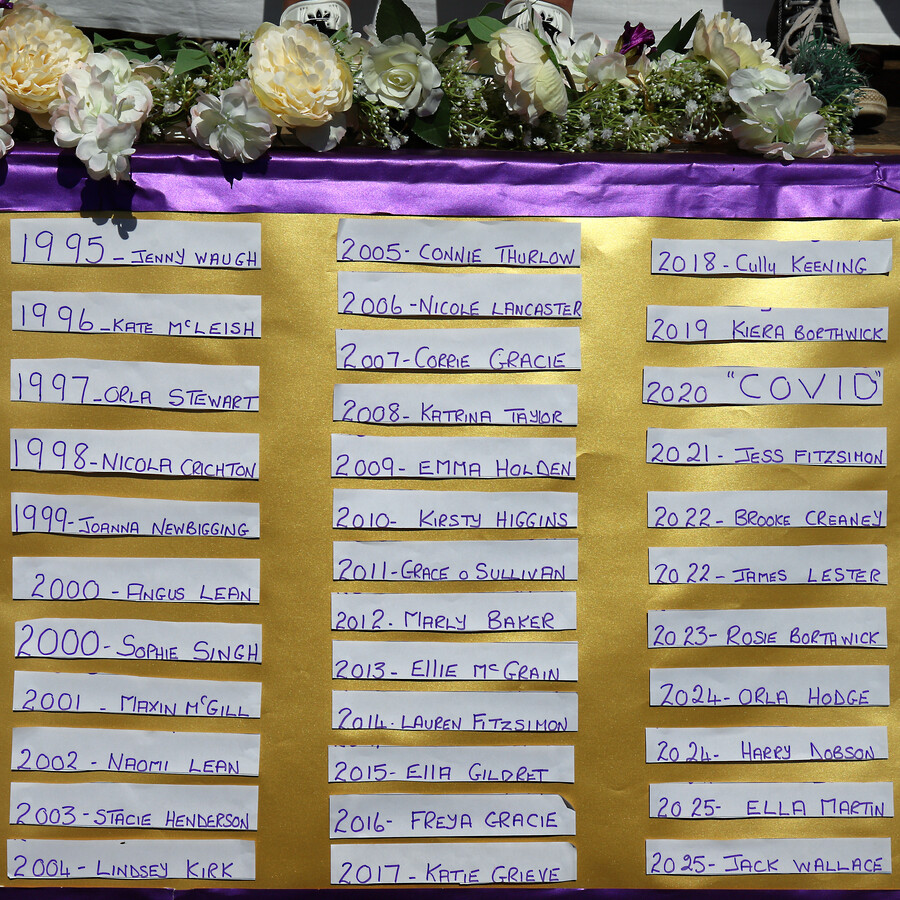 1995 - JENNY WAUGH
1996 - KATE McLEISH
1997 - ORLA STEWART
1998 - NICOLA CRICHTON
1999 - JOANNA NEWBIGGING
2000 - ANGUS LEAN
2000 - SOPHIE SINGH
2001 - MAXIN McGILL
2002 - NAOMI LEAN
2003 - STACIE HENDERSON
2004 - LINDSEY KIRK
2005 - CONNIE THURLOW
2006 - NICOLE LANCASTER
2007 - CORRIE GRACIE
2008 - KATRINA TAYLOR
2009 - EMMA HOLDEN
2010 - KIRSTY HIGGINS
2011 - GRACE O SULLIVAN
2012 - MARLY BAKER
2013 - ELLIE McGRAIN
2014 - LAUREN FITZSIMON
2015 - EllA GILDRET
2016 - FREYA GRACIE
2017 - KATIE GRIEVE
2018 - Cully KEENING
2019 KIERA BORTHWICK
2020 "COVID"
2021 - JESS FITZSIMON
2022 - BROOKE CREANEY
2022 - JAMES LESTER
2023 - ROSIE BORTHWICK
2024 - ORLA HODGE
2024 - HARRY DOBSON
2025 - ELLA MARTIN
2025 - JACK WALLACE